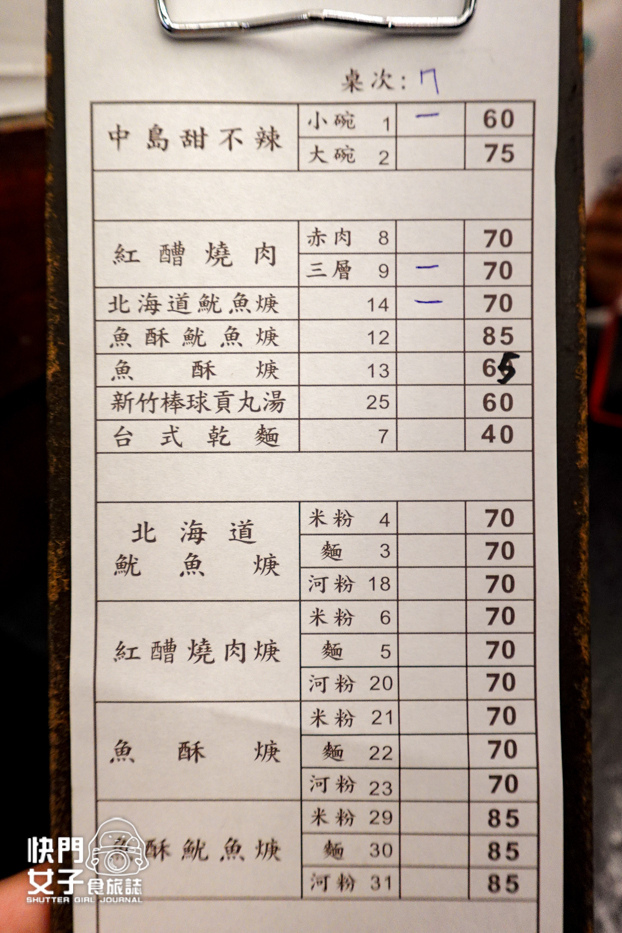 桌次: 7
中島甜不辣 小碗 1 一 60
大碗 2 75
紅醩燒肉 赤肉 8 70
三層 9 一 70
北海道魷魚焿 14 一 70
魚酥魷魚焿 12 85
魚酥焿 13 65
新竹棒球貢丸湯 25 60
台式乾麵 7 40
北海道
魷魚焿
米粉 4 70
麵 3 70
河粉 18 70
紅醩燒肉焿
米粉 6 70
麵 5 70
河粉 20 70
魚酥焿
米粉 21 70
麵 22 70
河粉 23 70
魚酥魷魚焿
米粉 29 85
麵 30 85
河粉 31 85
快門
女子食旅誌
SHUTTER GIRL JOURNAL